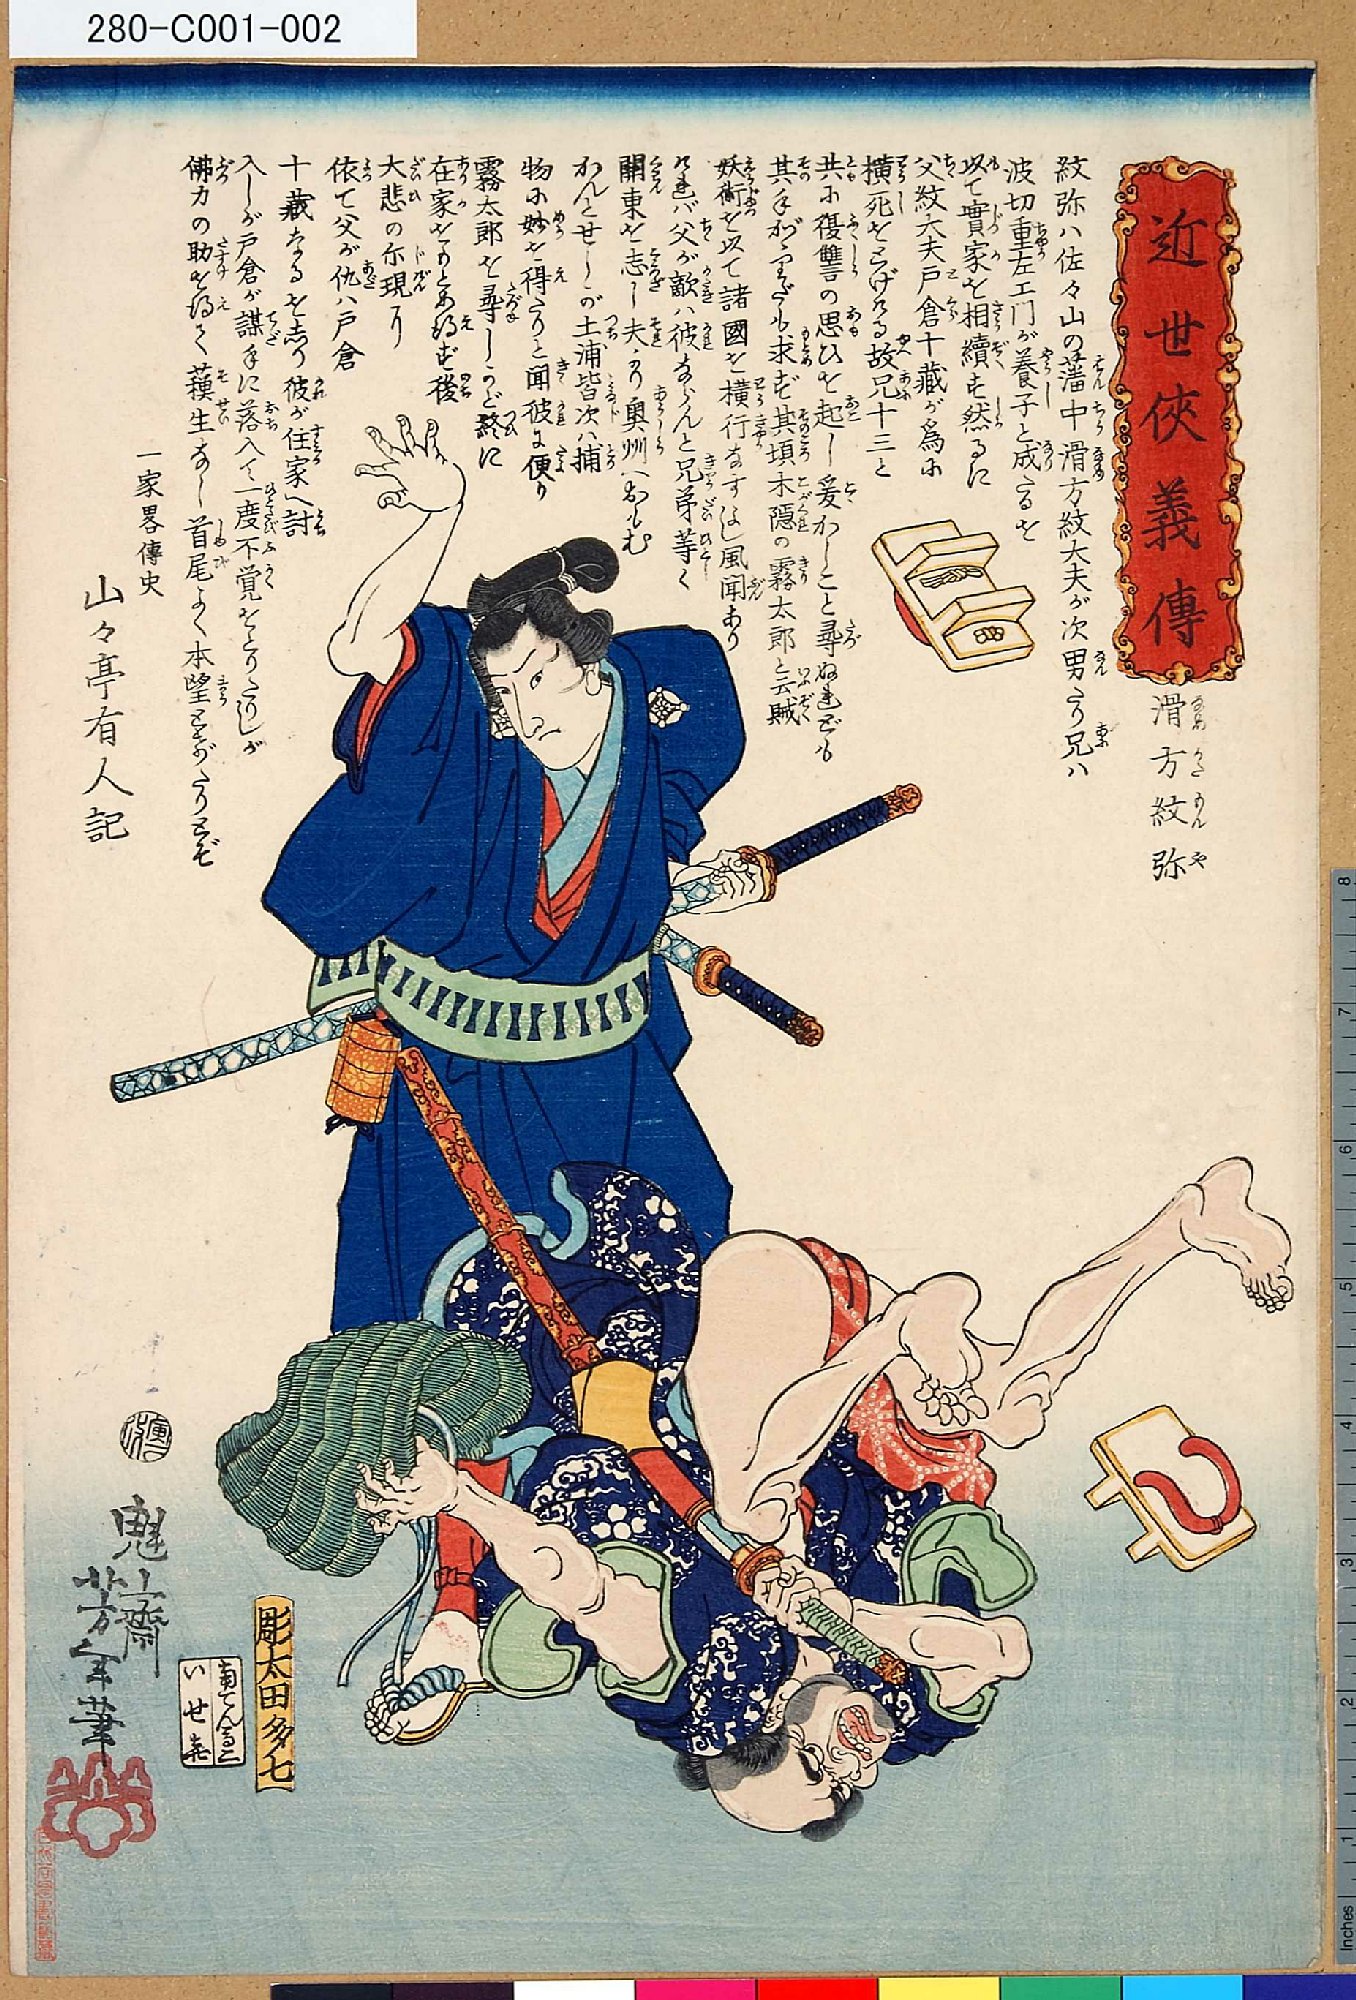 280-C001-002
近世俠義傳
滑方紋弥
なめかたもんや
紋弥ハ佐々山の藩中滑方紋大夫が次男たり兄ハ
波切重左エ門が養子と成たるを
以て實家を相續す然るに
父紋大夫戸倉十藏が爲に
横死をとげける故兄十三と
共に復讐の思ひを起し爰かしこと尋ぬれども
其手がゝりだも求ず其頃木隠の霧太郎と云賊
妖術を以て諸國を横行なすよし風聞あり
されバ父が敵ハ彼ならんと兄弟等く
關東を志し夫より奥州へおもむ
かんとせしが土浦皆次ハ捕
物に妙を得たりと聞彼に便り
霧太郎を尋しかど終に
在家をもとめ得ず後
大悲の尓現より
依て父が仇ハ戸倉
十藏なるを志り彼が住家へ討
入しが戸倉が謀手に落入て一度不覚をとりたりしが
佛力の助を得て蘓生なし首尾よく本望を遂たりとぞ
一家畧傳史
山々亭有人記
魁斎
芳年筆
彫太田多七
南てんま二
いせ喜
8
7
6
5
4
3
2
1
Inches